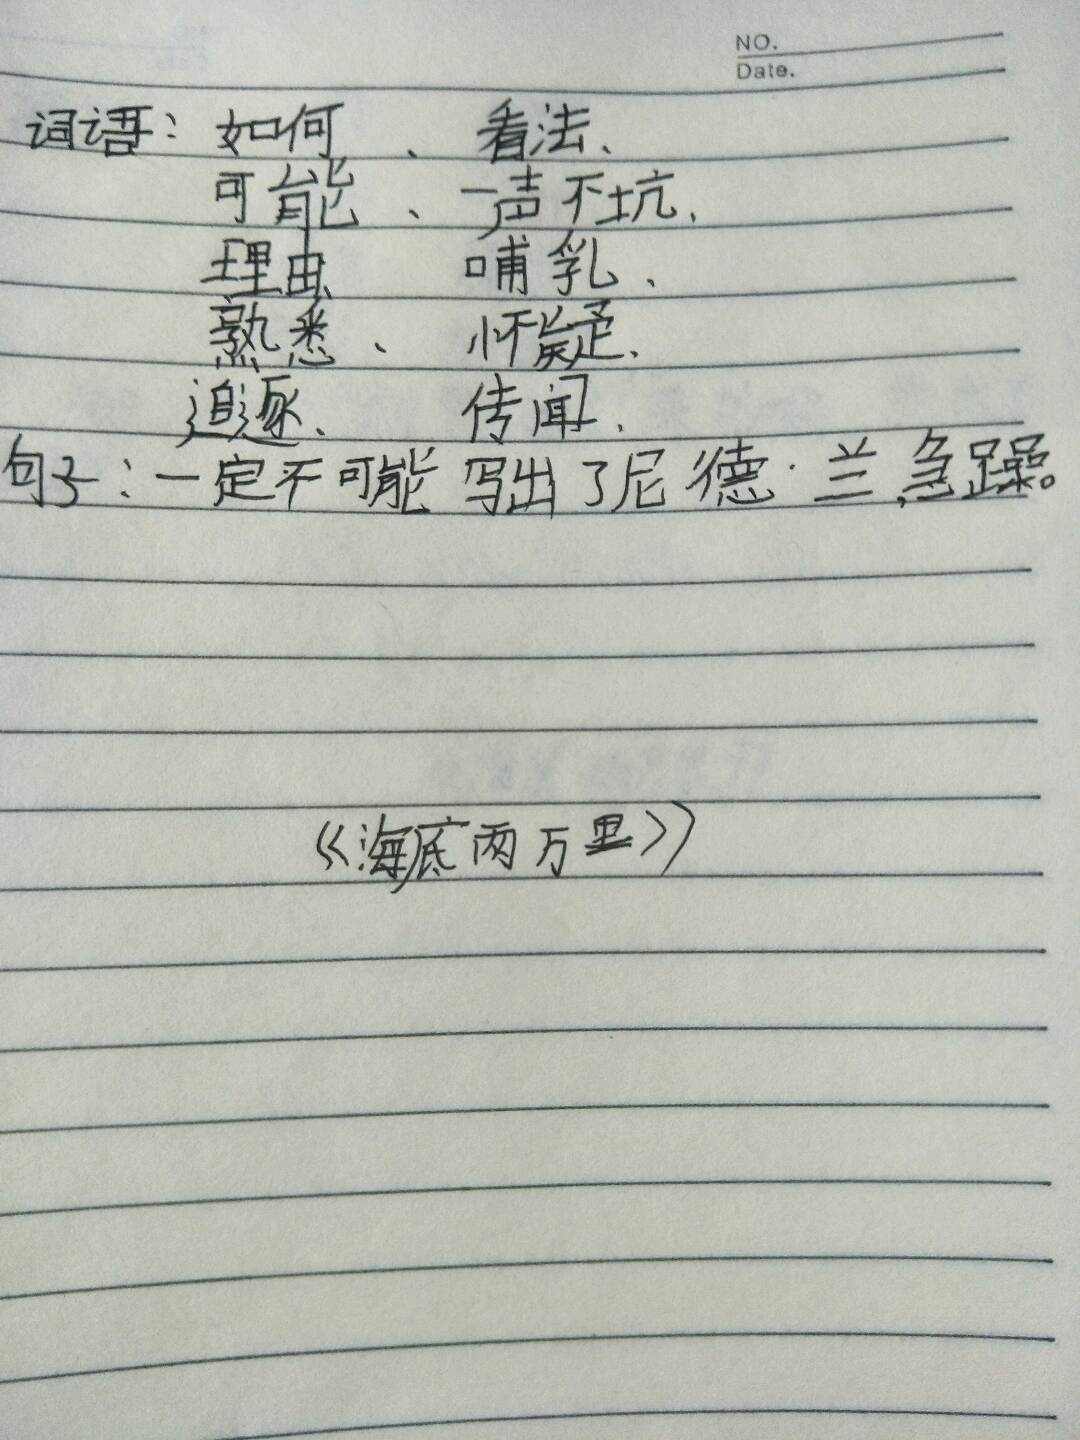 NO.
Date.
词语：如何、看法、
可能、一声不坑、
理由 哺乳、
熟悉、怀疑、
追逐、传闻、
句子：一定不可能 写出了尼德·兰急躁。
《海底两万里》